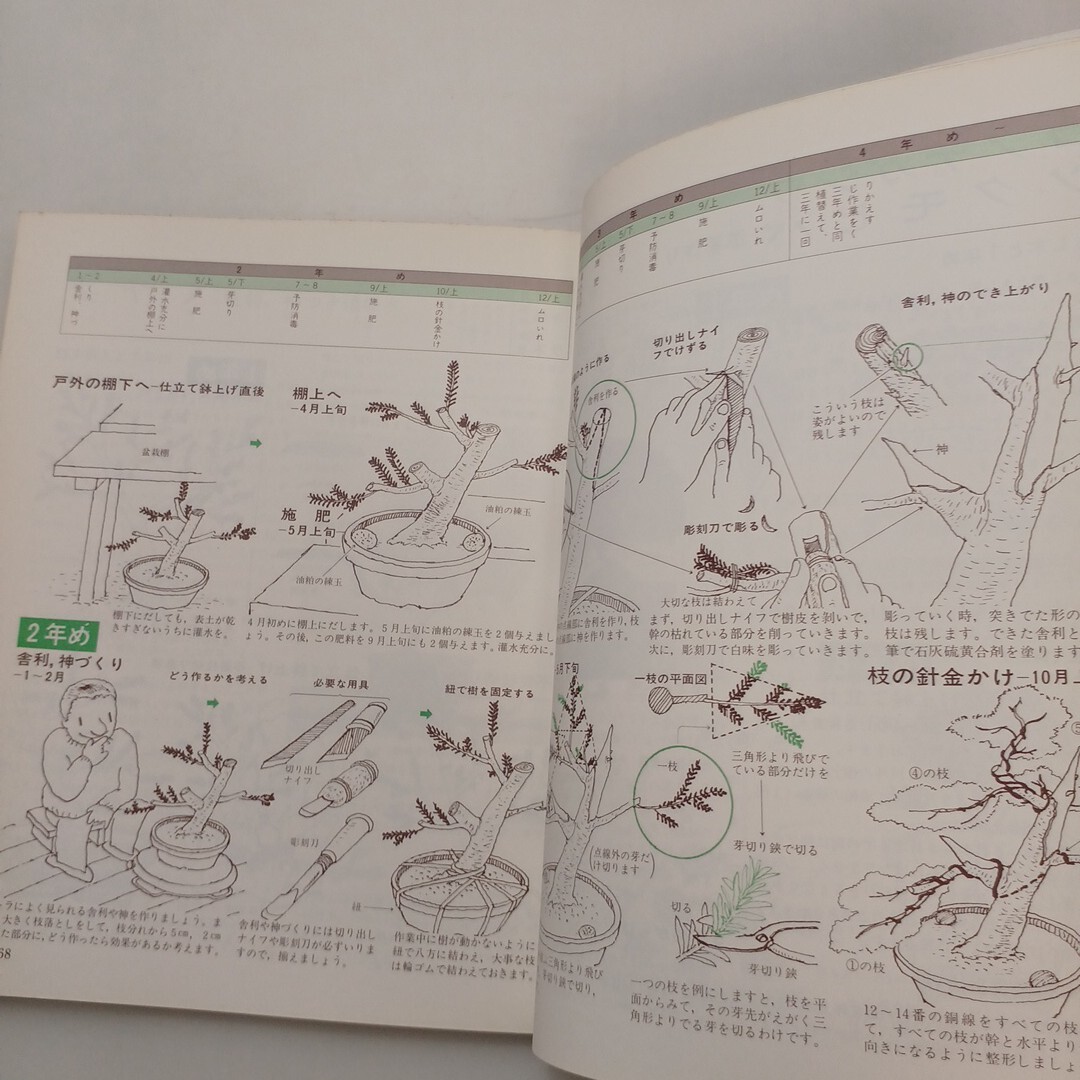 2 年 め
1－2
舎利、神づ
くり
4/上
戸外の棚上へ
灌水充分に
5/上
施 肥
5/下
芽切り
7－8
予防消毒
9/上
施 肥
10/上
枝の針金かけ
12/上
ムロいれ
戸外の棚下へ―仕立て鉢上げ直後
盆栽棚
棚下にだしても，表土が乾
きすぎないうちに灌水を。
棚上へ
―4月上旬
施 肥
―5月上旬
油粕の練玉
油粕の練玉
4月初めに棚上にだします。5月上旬に油粕の練玉を2個与えまし
ょう。その後，この肥料を9月上旬にも2個与えます。灌水充分に。
2年め
舎利，神づくり
―1～2月
どう作るかを考える
必要な用具
切り出し
ナイフ
彫刻刀
紐で樹を固定する
紐
ラによく見られる舎利や神を作りましょう。ま
大きく枝落としをして，枝分れから5cm，2cm
た部分に，どう作ったら効果があるか考えます。
舎利や神づくりには切り出し
ナイフや彫刻刀が必ずいりま
すので，揃えましょう。
作業中に樹が動かないように
紐で八方に結わえ，大事な枝
は輪ゴムで結わえておきます。
68
年 め
施
5/下
芽切り
7－8
予防消毒
9/上
施 肥
12/上
ムロいれ
4 年 め ～
三年に一回
植替えて、
三年めと同
じ作業をく
りかえす
のように作る
舎利を作る
切り出しナイ
フでけずる
舎利，神のでき上がり
こういう枝は
姿がよいので
残します
神
彫刻刀で彫る
大切な枝は結わえて
に舎利を作り，枝
に神を作ります。
まず，切り出しナイフで樹皮を剥いで，
幹の枯れている部分を削っていきます。
次に，彫刻刀で白味を彫っていきます。
彫っていく時，突きでた形の
枝は残します。できた舎利と
筆で石灰硫黄合剤を塗ります
月下旬
点線外の芽だ
け切ります
三角形より飛び
芽切り鋏で切り，
一枝の平面図
三角形より飛びで
ている部分だけを
一枝
芽切り鋏で切る
切る
芽切り鋏
一つの枝を例にしますと，枝を平
面からみて，その芽先がえがく三
角形よりでる芽を切るわけです。
枝の針金かけ―10月上
④の枝
①の枝
12～14番の銅線をすべての枝
て，すべての枝が幹と水平より
向きになるように整形しましょ